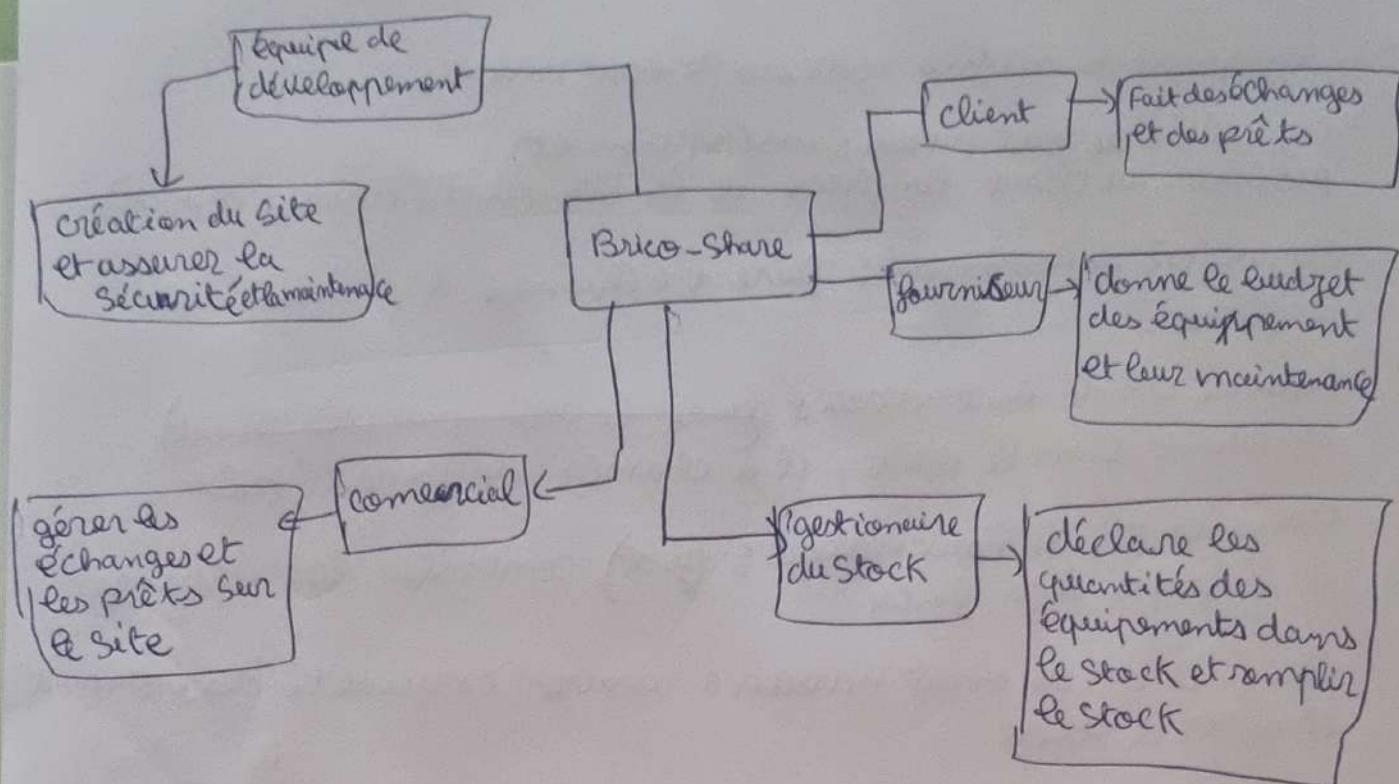 équipe de
développement
création du site
et assurer la
sécurité et la maintenance
Brico-Share
client
Fait des échanges
et des prêts
fournisseur
donne le budget
des équippement
et leur maintenance
comercial
gérer les
échanges et
les prêts sur
le site
gestionaire
du stock
déclare les
quantités des
équipements dans
le stock et remplir
le stock